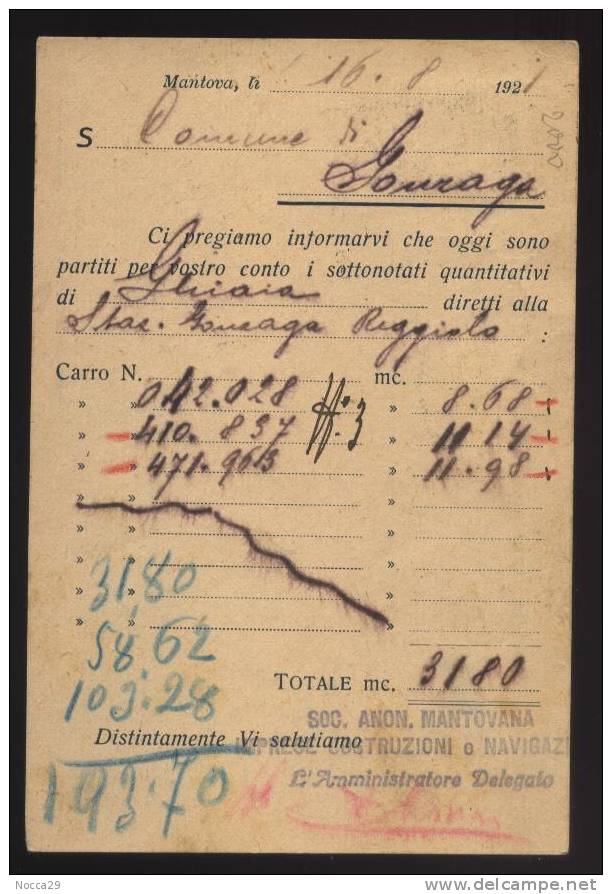 Mantova, li 16.8 1921
S Comune di
Gonzaga
Ci pregiamo informarvi che oggi sono
partiti per vostro conto i sottonotati quantitativi
di Ghiaia diretti alla
Staz. Gonzaga Reggiolo :
Carro N. 042.028 mc. 8.68
» 410.837 » 11 14
» 471.963 » 11.98
N. 3
» »
» »
» 31,80 »
» 58.62 »
103.28
TOTALE mc. 3180
Distintamente Vi salutiamo
193.70
SOC. ANON. MANTOVANA
IMPRESE COSTRUZIONI e NAVIGAZI
L'Amministratore Delegato
Nocca29
www.delcampe.net